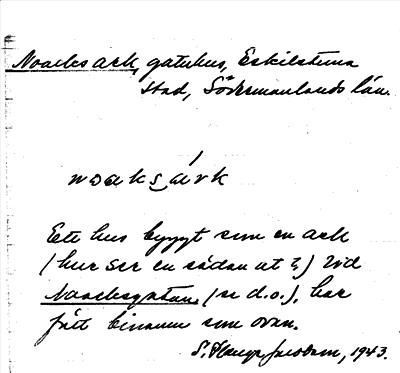 Noaks ark, gatuhus, Eskilstuna
stad, Södermanlands län.
noaks ark
Ett hus byggt som en ark
(hur ser en sådan ut?) vid
Noaksgatan (se d.o.), har
fått binamn som ovan.
S. Jacobson, 1943.